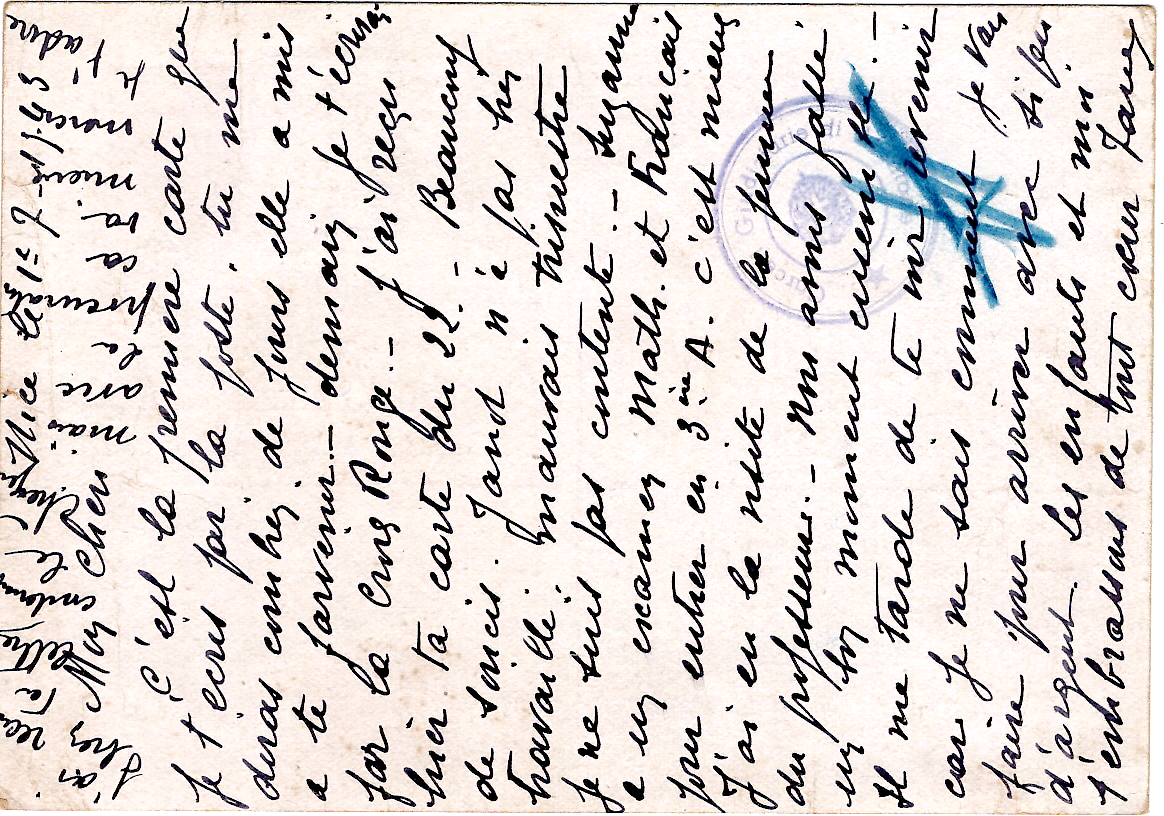 Nice le 1er 7 1943
Mon Cheri
C'est la premiere carte que
je t'ecris par la poste. tu me
diras combien de jours elle a mis
a te parvenir — demain je t'écrirai
par la Croix Rouge. — J'ai reçu
hier ta carte du 22. — Beaucoup
de soucis. Janot n'a pas bien
travaillé. mauvais trimestre
je ne suis pas contente. — Suzanne
a un examen Math. et Français
pour entrer en 3ème A. c'est mieux
J'ai eu la visite de la femme
du professeur. — nous avons parlé
un bon moment ensemble. —
Il me tarde de te voir revenir
car je ne sais comment je vais
faire pour arriver avec si peu
d'argent. Les enfants et moi
t'embrassons de tout cœur
j'ai reçu ta lettre le
mais avec la ça va mieux merci
je t'adore